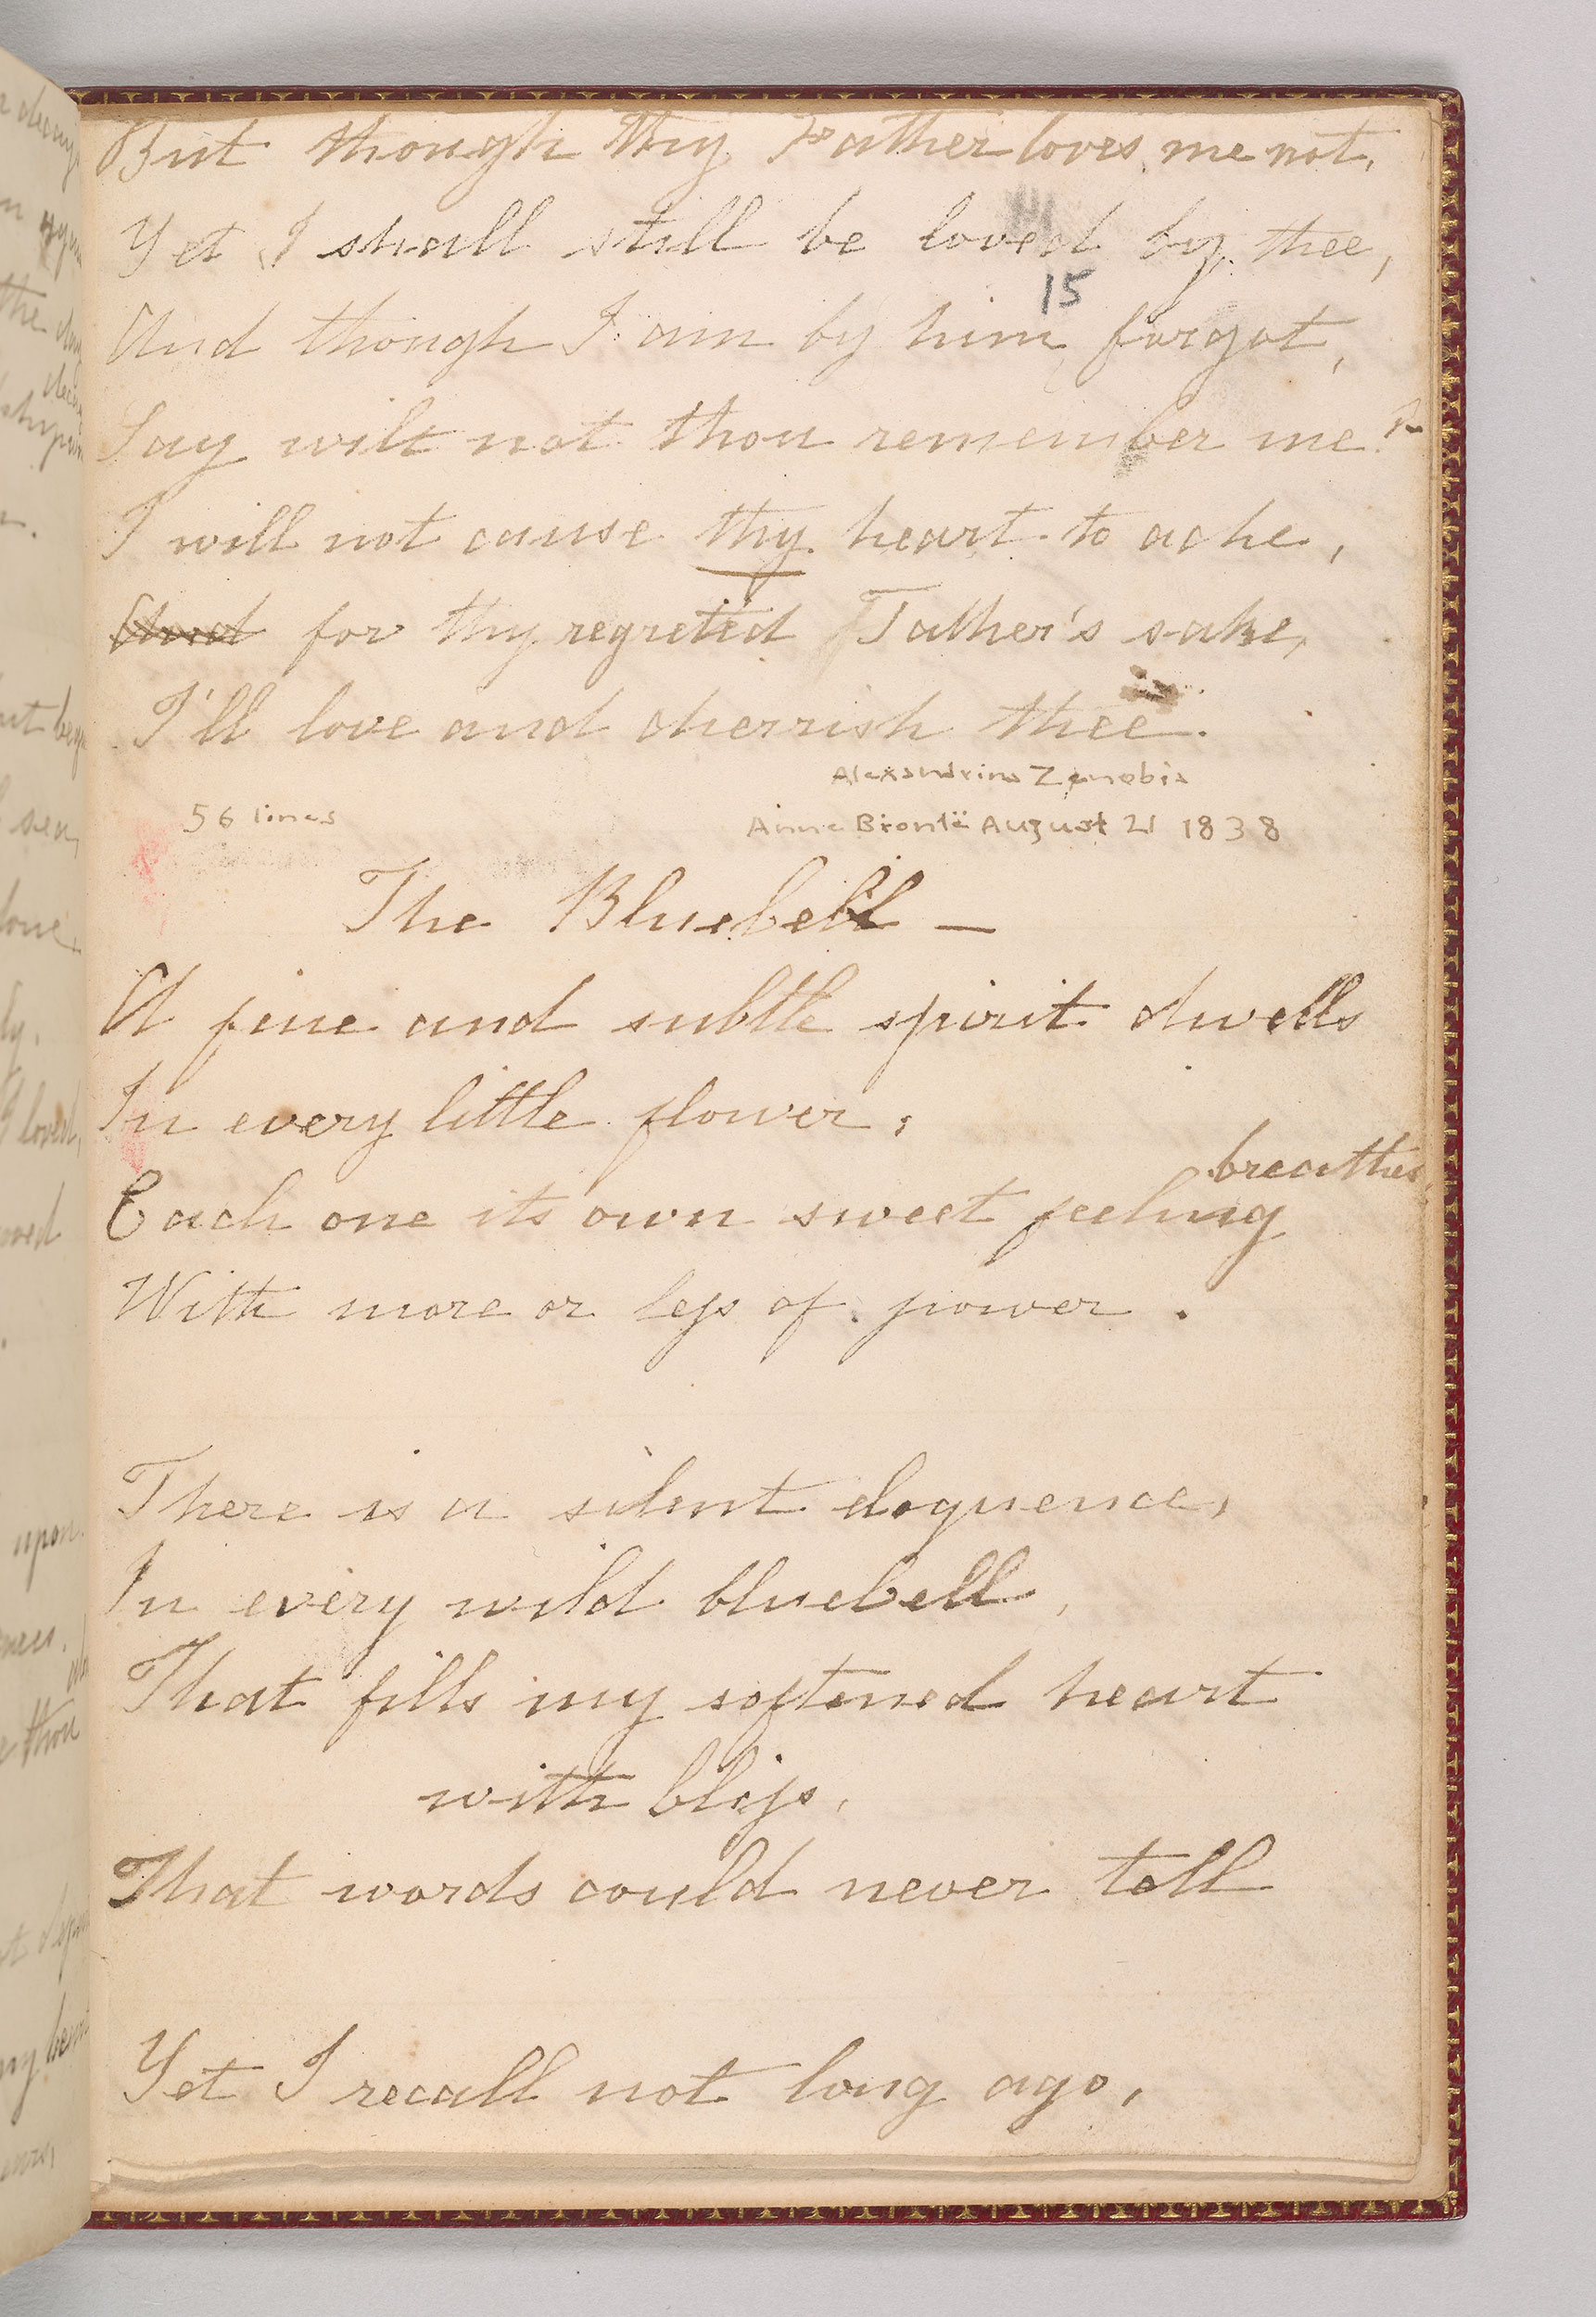 But though thy Father loves me not,
Yet I shall still be loved by thee,
15
And though I am by him forgot,
Say wilt not thou remember me?
I will not cause thy heart to ache,
And for thy regreted Father's sake,
I'll love and cherrish thee.
Alexandrina Zenobia
56 lines
Anne Brontë August 21 1838
The Bluebell —
A fine and subtle spirit dwells
In every little flower;
breathes
Each one its own sweet feeling
With more or less of power.
There is a silent eloquence,
In every wild bluebell,
That fills my softened heart
with bliss,
That words could never tell
Yet I recall not long ago,
upon
thou